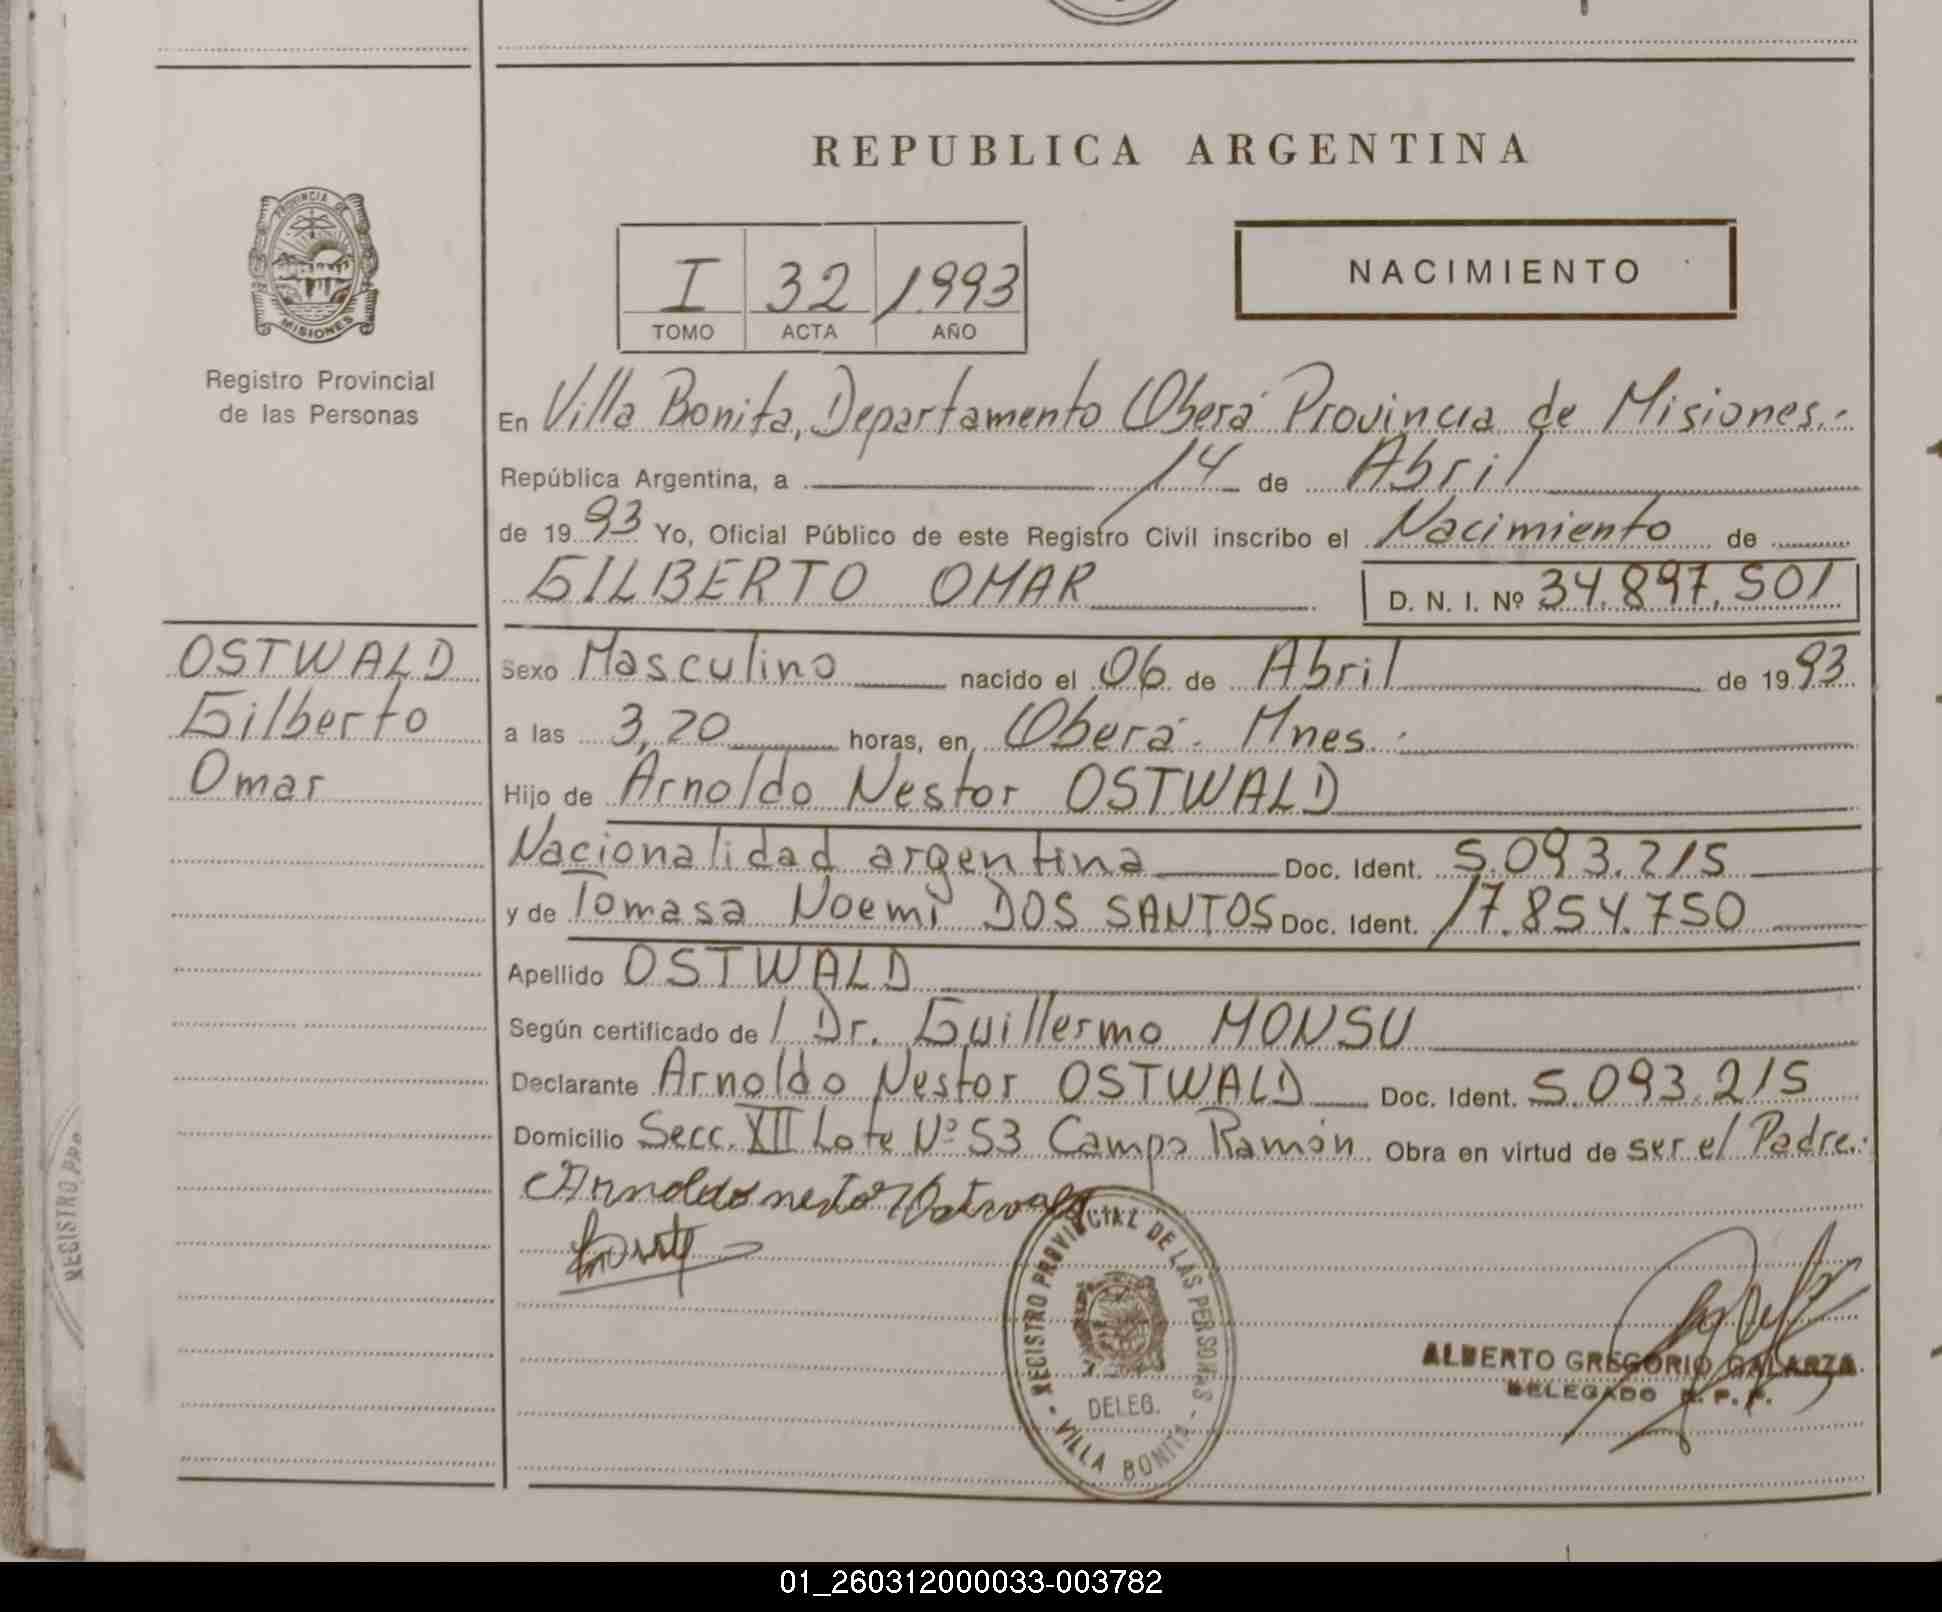 REPUBLICA ARGENTINA
PROVINCIA DE
MISIONES
Registro Provincial
de las Personas
I 32 1993
TOMO ACTA AÑO
NACIMIENTO
En Villa Bonita, Departamento Oberá Provincia de Misiones.-
República Argentina, a 14 de Abril
de 1993 Yo, Oficial Público de este Registro Civil inscribo el Nacimiento de
GILBERTO OMAR D. N. I. Nº 34.897.501
OSTWALD
Gilberto
Omar
Sexo Masculino nacido el 06 de Abril de 1993
a las 3,20 horas, en Oberá - Mnes.-
Hijo de Arnoldo Nestor OSTWALD
Nacionalidad argentina Doc. Ident. 5.093.215
y de Tomasa Noemi DOS SANTOS Doc. Ident. 17.854.750
Apellido OSTWALD
Según certificado de l Dr. Guillermo MONSU
Declarante Arnoldo Nestor OSTWALD Doc. Ident. 5.093.215
Domicilio Secc. XII Lote Nº 53 Campo Ramón Obra en virtud de ser el Padre.-
Arnoldo nestor Ostwald
REGISTRO PROVINCIAL DE LAS PERSONAS
DELEG.
- VILLA BONITA -
ALBERTO GREGORIO GALARZA
DELEGADO R. P. P.
REGISTRO PRO
01_260312000033-003782